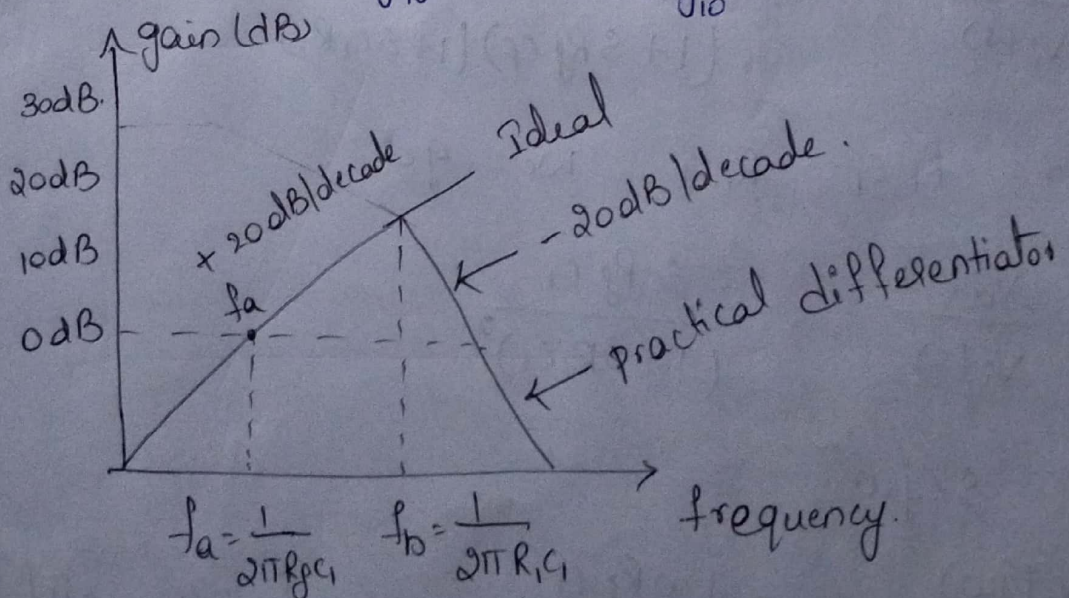 gain (dB)
30dB.
20dB
10dB
0dB
+ 20dB/decade
Ideal
-20dB/decade.
fa
practical differentiator
fa = 1/2πRfC1
fb = 1/2πR1C1
frequency.